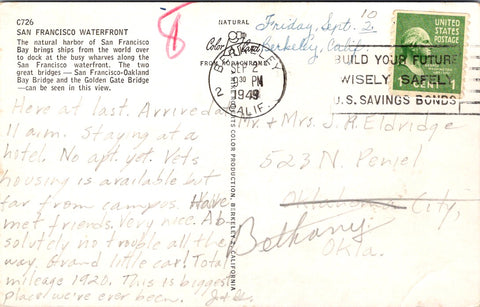 C726
SAN FRANCISCO WATERFRONT
The natural harbor of San Francisco
Bay brings ships from the world over
to dock at the busy wharves along the
San Francisco waterfront. The two
great bridges — San Francisco-Oakland
Bay Bridge and the Golden Gate Bridge
—can be seen in this view.
8
NATURAL
Color
FROM KODACHROME
Friday, Sept. 2
Berkeley, Calif.
BERKELEY
SEP 2
30 PM
1949
2
CALIF.
BUILD YOUR FUTURE
WISELY SAFELY
U.S. SAVINGS BONDS
UNITED
STATES
POSTAGE
1 CENT 1
Here at last. Arrived
11 a.m. Staying at a
hotel. No apt. yet. Vets
housing is available but
far from campus. Have
met friends. Very nice. Ab-
solutely no trouble all the
way. Grand little car! Total
mileage 1920. This is biggest
place we've ever been.
COLOR PRODUCTION, BERKELEY 2, CALIFORNIA
Mr. & Mrs. J. R. Eldridge
523 N. Peniel
Oklahoma City,
Bethany
Okla.